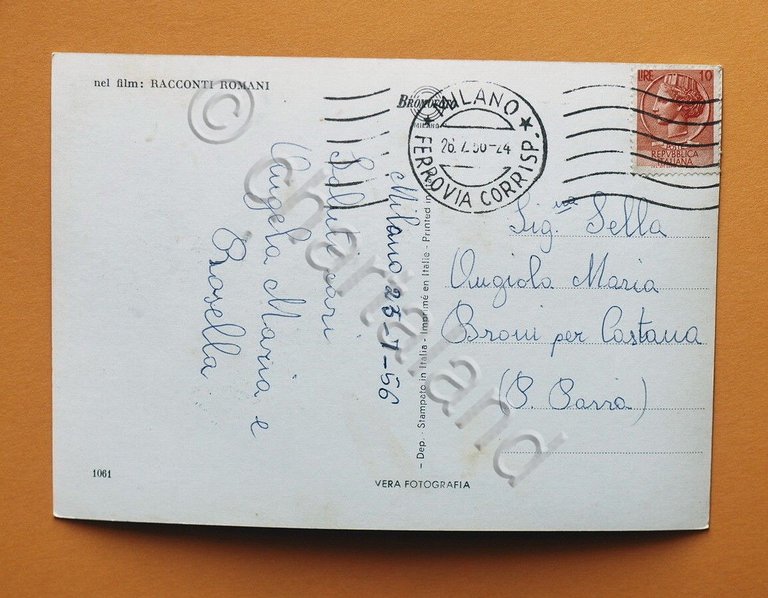 nel film: RACCONTI ROMANI
BROMOFOTO
MILANO
MILANO
FERROVIA CORRISP.
LIRE 10
REPUBBLICA
ITALIANA
Saluti cari
Angela Maria e
Rosella
Milano 25-7-56
Dep. - Stampato in Italia - Imprimé en Italie - Printed in
Sig.na Sella
Angiola Maria
Broni per Castana
(P. Pavia)
1061
VERA FOTOGRAFIA
© chartaland